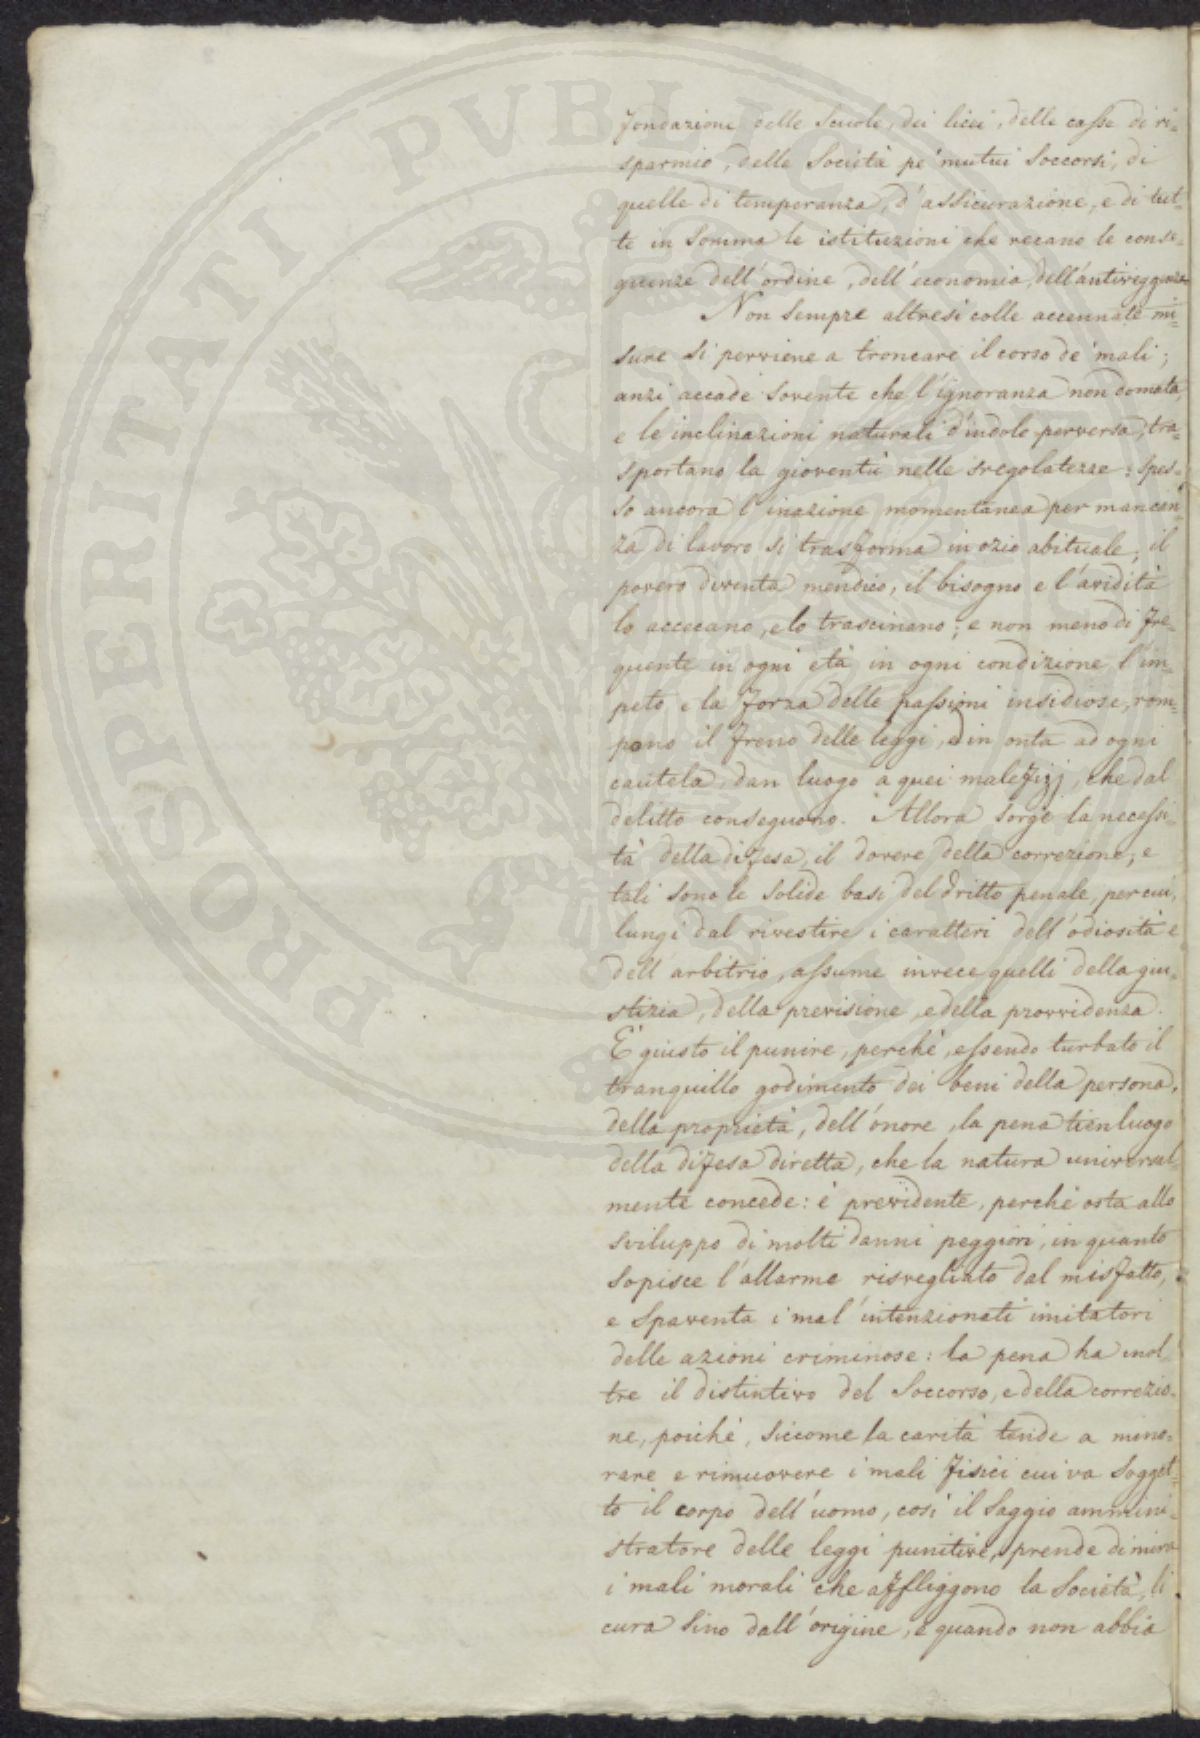 fondazione delle Scuole, dei licei, delle casse di ri-
sparmio, delle Società pe' mutui Soccorsi, di
quelle di temperanza, d'assicurazione, e di tut-
te in Somma le istituzioni che recano le conse-
guenze dell'ordine, dell'economia, dell'antiveggenza
Non Sempre altresì colle accennate mi-
sure Si perviene a troncare il corso de' mali;
anzi accade Sovente che l'ignoranza non domata,
e le inclinazioni naturali d'indole perversa, tra-
sportano la gioventù nelle sregolatezze: Spes-
so ancora l'inazione momentanea per mancan-
za di lavoro si trasforma in ozio abituale, il
povero diventa mendico, il bisogno e l'avidità
lo accecano, e lo trascinano; e non meno di fre-
quente in ogni età in ogni condizione l'im-
peto e la forza delle passioni insidiose, rom-
pono il freno delle leggi, ed in onta ad ogni
cautela, dan luogo a quei malefizj, che dal
delitto conseguono. Allora Sorge la necessi-
tà della difesa, il dovere della correzione, e
tali sono le Solide basi del dritto penale, per cui,
lungi dal rivestire i caratteri dell'odiosità e
dell'arbitrio, assume invece quelli della giu-
stizia, della previsione, e della provvidenza.
E' giusto il punire, perchè, essendo turbato il
tranquillo godimento dei beni della persona,
della proprietà, dell'onore, la pena tien luogo
della difesa diretta, che la natura universal-
mente concede: è previdente, perchè osta allo
sviluppo di molti danni peggiori, in quanto
Sopisce l'allarme risvegliato dal misfatto,
e Spaventa i mal'intenzionati imitatori
delle azioni criminose: la pena ha inol
tre il distintivo del Soccorso, e della correzio-
ne, poichè, Siccome la carità tende a mino-
rare e rimuovere i mali fisici cui va Sogget-
to il corpo dell'uomo, così il Saggio ammini-
stratore delle leggi punitive, prende di mira
i mali morali che affliggono la Società, li
cura Sino dall'origine, e quando non abbia
PROSPERITATI PVBLICAE